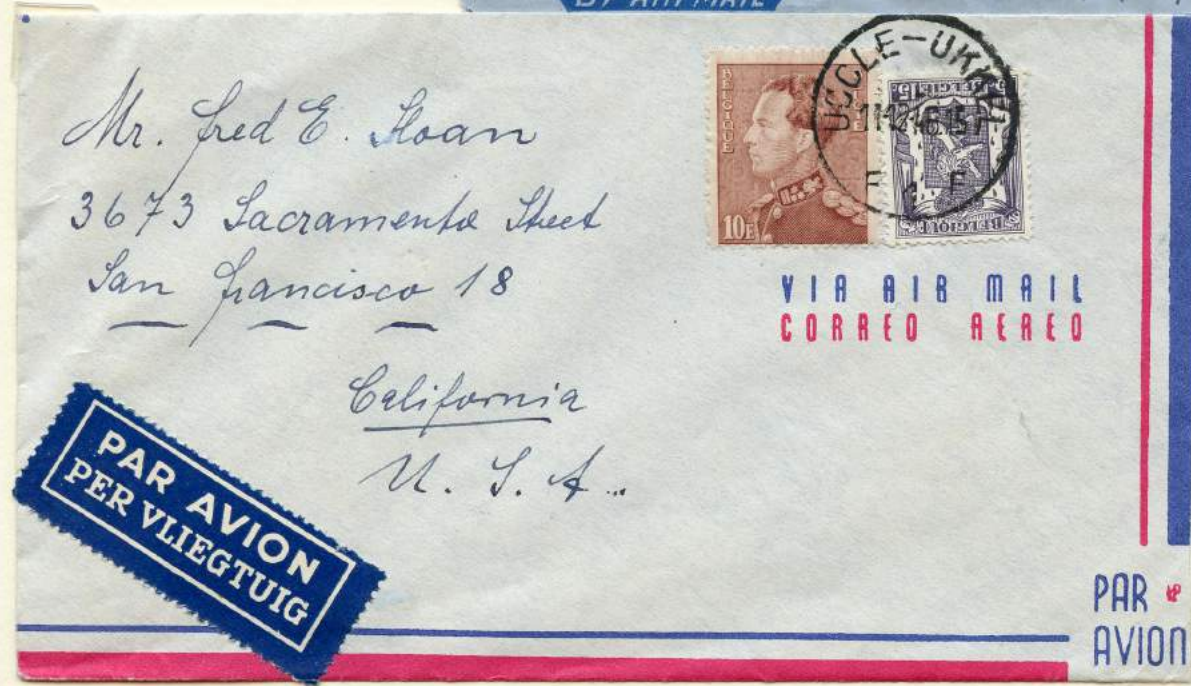 BY AIR MAIL
Mr. Fred E. Sloan
3673 Sacramento Street
San Francisco 18
California
U. S. A.
BELGIQUE
10F
UCCLE-UKKEL
BELGIQUE
VIA AIR MAIL
CORREO AEREO
PAR AVION
PER VLIEGTUIG
PAR
AVION